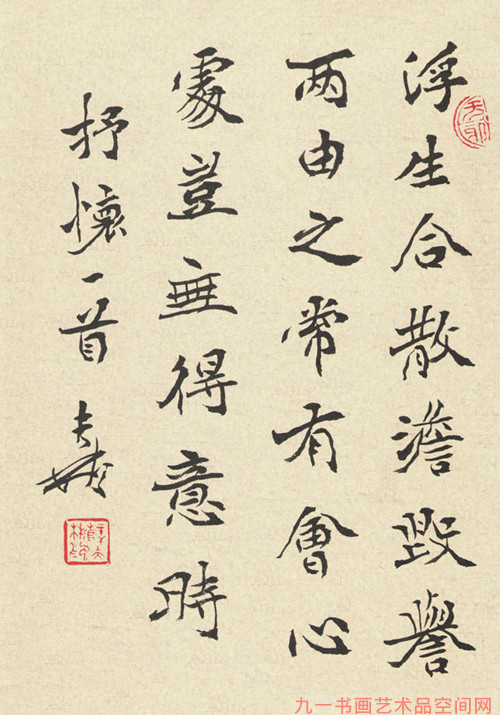 浮生合散澹毀譽
两由之常有會心
處豈無得意時
抒懷一首
九一书画艺术品空间网